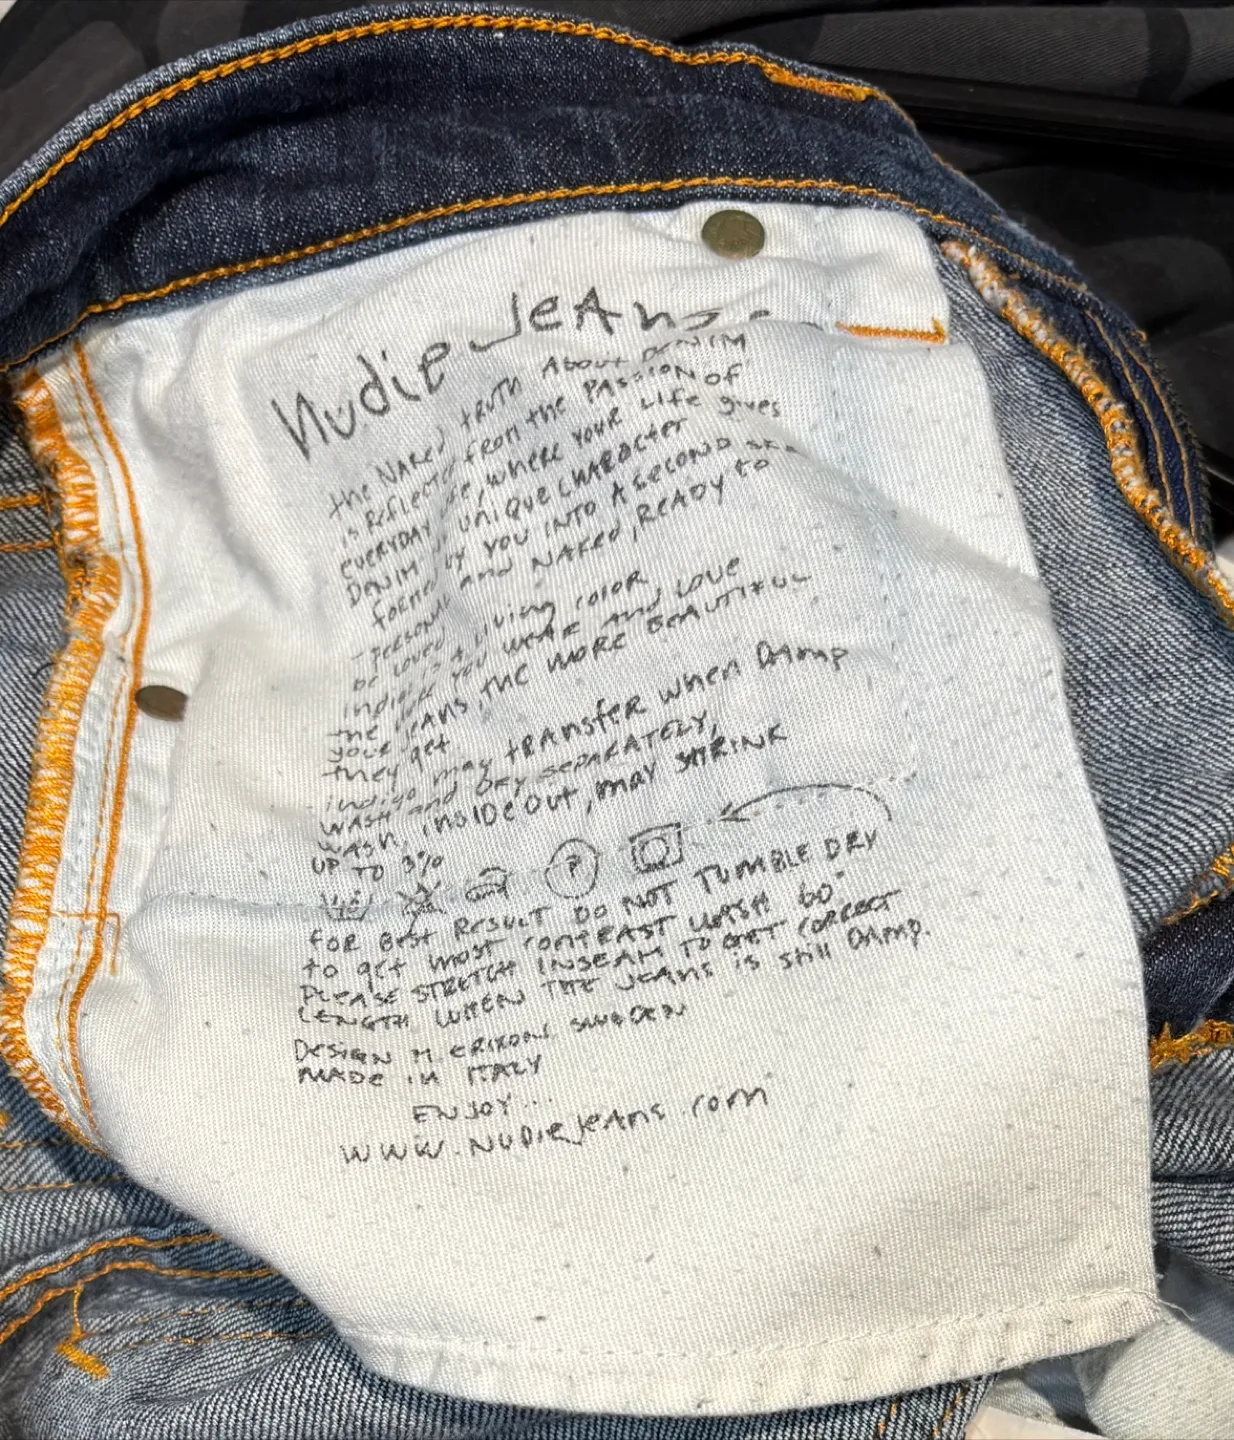 Nudie Jeans
the NAKED tRUth About DENIM
is REFLECTED from the PASSION of
EVERYDAY LIFE, WHERE YOUR LIFE gives
DENIM UNIQUE CHARACTER
FORMED by YOU INTO A SECOND SKIN
- PERSONAL and NAKED, READY to
be LOVED
indigo is A Living COLOR
the you WEAR and LOVE
your JEANS, the MORE BEAUTIFUL
they get
indigo may tRANsfer when DAmp
WASH and DRY SEPARATELY,
WASH INSIDE OUT, MAY SHRINK
UP TO 3%
P
FOR BEST RESULT DO NOT TUMBLE DRY
to get most CONTRAST WASH 60°
PLEASE STRETCH INSEAM TO GET CORRECT
LENGTH WHEN THE JEANS is still DAmp.
DESIGN M. ERIXON, SWEDEN
MADE in ITALY
ENJOY...
WWW.NUDieJeAns.com